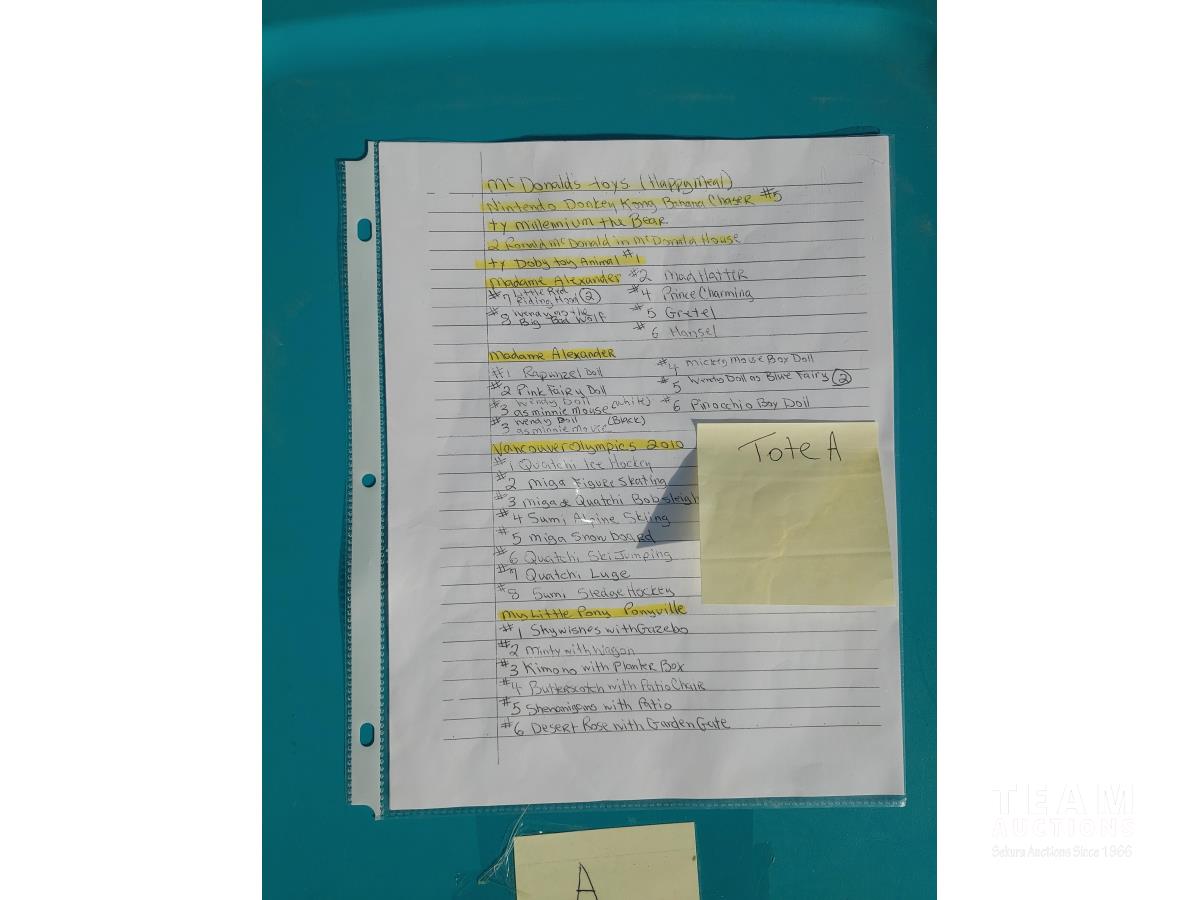 McDonald's toys (Happy Meal)
Nintendo Donkey Kong Banana Chaser #5
ty Millennium the Bear
2 Ronald McDonald in McDonald House
ty Doby toy Animal #1
Madame Alexander #2 Mad Hatter
#7 Little Red Riding Hood (2) #4 Prince Charming
#8 Wendy as the Big Bad Wolf #5 Gretel
#6 Hansel
Madame Alexander #4 Mickey Mouse Boy Doll
#1 Rapunzel Doll
#2 Pink Fairy Doll #5 Wendy Doll as Blue Fairy (2)
#3 Wendy Doll as Minnie Mouse (White) #6 Pinocchio Boy Doll
#3 Wendy Doll as Minnie Movie (Black)
Vancouver Olympics 2010
Tote A
#1 Quatchi Ice Hockey
#2 Miga Figure Skating
#3 Miga & Quatchi Bobsleigh
#4 Sumi Alpine Skiing
#5 Miga Snow board
#6 Quatchi Ski Jumping
#7 Quatchi Luge
#8 Sumi Sledge Hockey
My Little Pony Ponyville
#1 Skywishes with Gazebo
#2 Minty with Wagon
#3 Kimono with Planter Box
#4 Butterscotch with Patio Chair
#5 Shenanigans with Patio
#6 Desert Rose with Garden Gate
A
TEAM
AUCTIONS
Sekura Auctions Since 1966